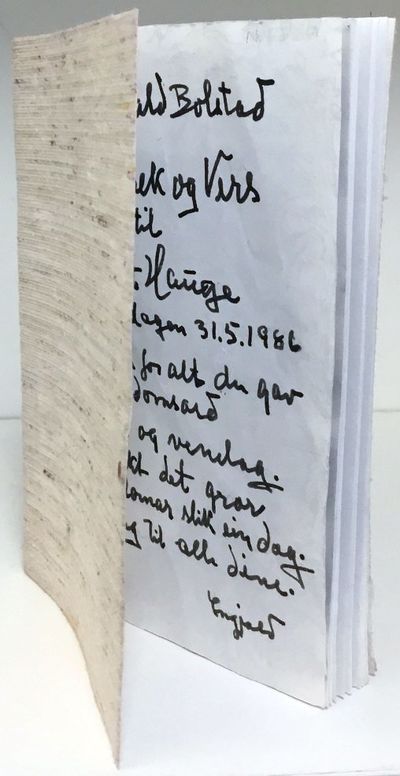 ald Bolstad
ek og Vers
til
Hauge
dagen 31.5.1986
for alt du gav
domsard
og vendag.
kt det gror
lomar slik ein dag.
g til alle dine.
Engjald